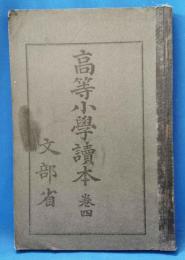 高等小學讀本 巻四
文部省